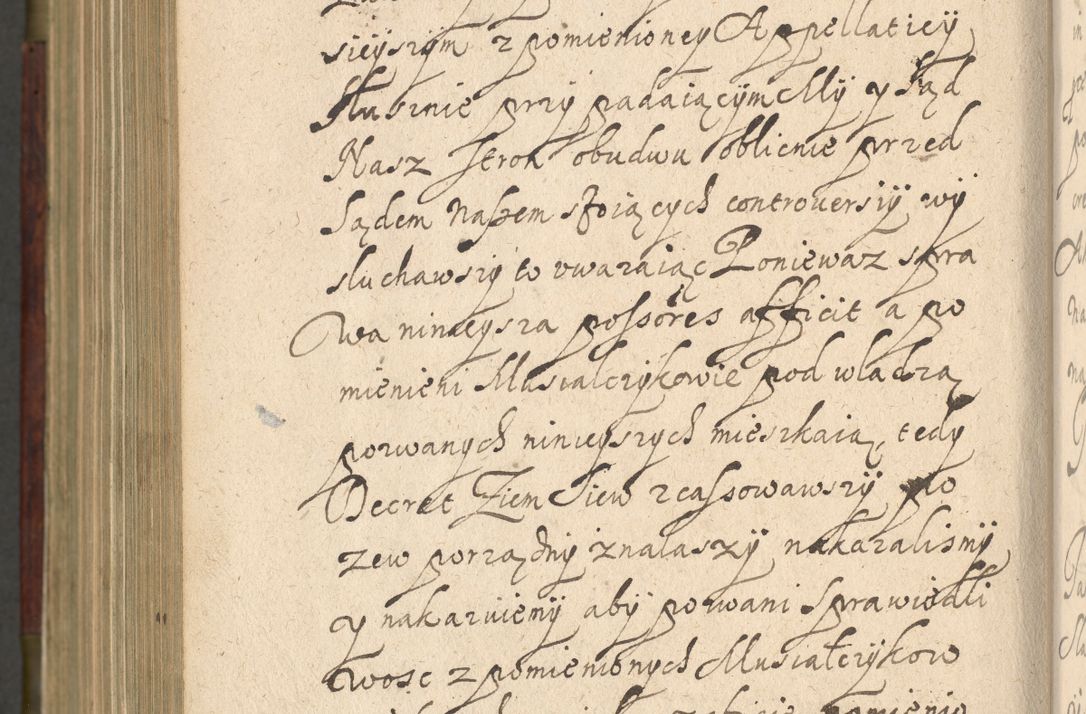 sieÿszÿm z pomienioney Appellaticÿ
słusznie przÿ padaiącÿm Mÿ y Sąd
Nasz stron obudwu oblicnie przed
Sądem Naszem stoiącÿch controuersiÿ wÿ
słuchawszÿ to vwazaiąc Poniewaz spra
wa ninieysza possores afficit a po
mienieni Musialczÿkowie pod władzą
pozwanÿch ninieyszych mieszkaią, tedy
Decret Ziem Siew zcassowawszÿ po
zew porządnÿ znalaszÿ nakazalismÿ
y nakazuiemÿ abÿ pozwani sprawiedli
wosc z pomienionych Musiałczÿkow
pomienio